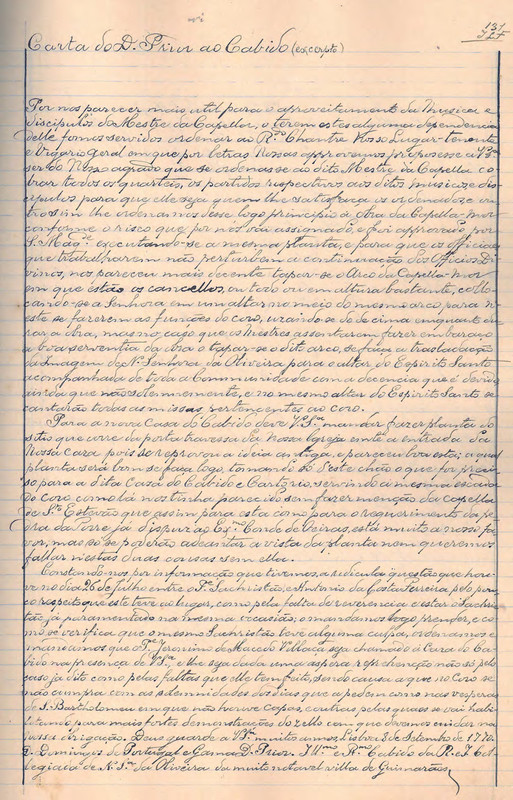 131
JLF
Carta do D. Prior ao Cabido (excerpto)
Por nos parecer mais util para o aproveitamento da Musica e
discipulos do Mestre da Capella, o terem estes alguma dependencia
delle fomos servidos ordenar ao R.do Chantre Nosso Lugar-tenente
e Vigario Geral em que por letras Nossas approvemos propozesse a VS.as
ser do Nosso agrado que se ordenasse ao dito Mestre da Capella co-
brar todos os quarteis, os partidos respectivos aos ditos musicos e dis-
cipulos para que elle seja quem lhe satisfaça os ordenados e ou-
trosim lhe ordenamos desse logo principio á obra da Capella-mor
conforme o risco que por nós vai assignado, e foi approvado por
S. Mag.de executando-se a mesma planta, e para que os officiaes
que trabalharem não perturbem a continuação dos Officios Di-
vinos, nos pareceu mais decente tapar-se o Arco da Capella-mor
em que estão os cancellos, ou todo ou em altura bastante, collo-
cando-se a Senhora em um altar no meio do mesmo arco para n'
este se fazerem as funções do coro, uzando-se de de cima emquanto du-
rar a obra, mas no caso que os Mestres assentarem fazer embaraço
a boa serventia da obra o tapar-se o dito arco, se faça a trasladação
da Imagem de N.ª Senhora da Oliveira para o altar do Espirito Santo
acompanhada de toda a Communidade com a decencia que é devida
ainda que não solemnemente, e no mesmo altar do Espirito Santo se
cantarão todas as missas pertencentes ao coro.
Para a nova Casa do Cabido deve VS.as mandar fazer planta do
sitio que corre da porta travessa da Nossa Igreja emté a entrada da
Nossa Casa pois se reprovou a ideia antiga, e pareceu boa esta; a qual
planta será bem se faça logo, tomando só d'este chão o que for preci-
so para a dita Casa do Cabido e Cartorio, servindo a mesma escada
do coro como lá nos tinha parecido sem fazer menção da capella
de S.to Estevão que assim para esta como para o requerimento da pe-
dra da Torre já dispuz ao Ex.mo Conde de Oeiras, está muito a nosso fa-
vor, mas só se poderão adeantar á vista da planta nem queremos
fallar n'estas duas cousas sem ella.
Constando-nos por informação que tivemos, a ridicula questão que hou-
ve no dia 26 de julho entre o P.e Sachristão, e Antonio da Costa Pereira, pelo pou-
co respeito que este teve ao lugar, como pela falta de reverencia e estar o Sachris-
tão já paramentado na mesma occasião; o mandamos logo prender, e co-
mo se verifica que o mesmo Sachristão teve alguma culpa, ordenamos e
mandamos que o P.e Jeronimo de Macedo Villaça seja chamado á Casa do Ca-
bido na presença de VS.as, e lhe seja dada uma aspera reprehenção não só pelo
caso já dito como pelas faltas que elle tem feito, sendo causa a que no Coro se
não cumpra com as solemnidades dos dias que a pedem como nas vesporas
de S. Bartholomeu em que não houve Capas, e outras pelas quaes se vai habi-
litando para mais fortes demonstrações do zello com que devemos cuidar na
nossa obrigação. Deus guarde a VS.as muitos annos, Lisboa 8 de Setembro de 1770.
D. Domingos de Portugal e Gama D. Prior. Ill.mo e R.mo Cabido da R. e I. Col-
legiada de N.ª Sr.ª da Oliveira da muito notavel villa de Guimarães